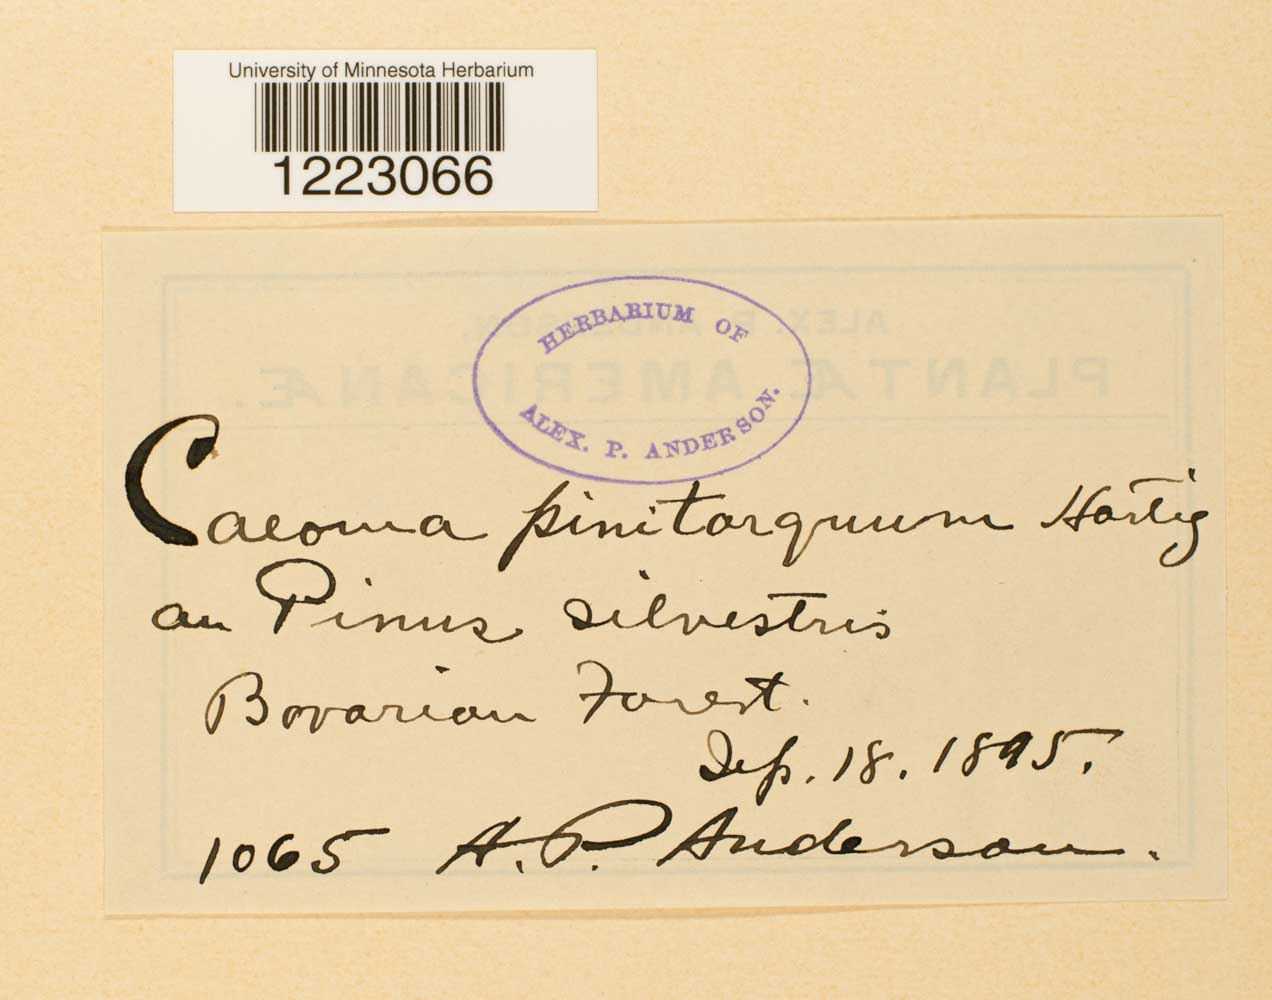 University of Minnesota Herbarium
1223066
HERBARIUM OF
ALEX. P. ANDERSON.
ALEX. P. ANDERSON,
PLANTÆ AMERICANÆ.
Caeoma pinitorquum Hartig
an Pinus silvestris
Bavarian Forest.
Sep. 18. 1895.
1065 A. P. Anderson.